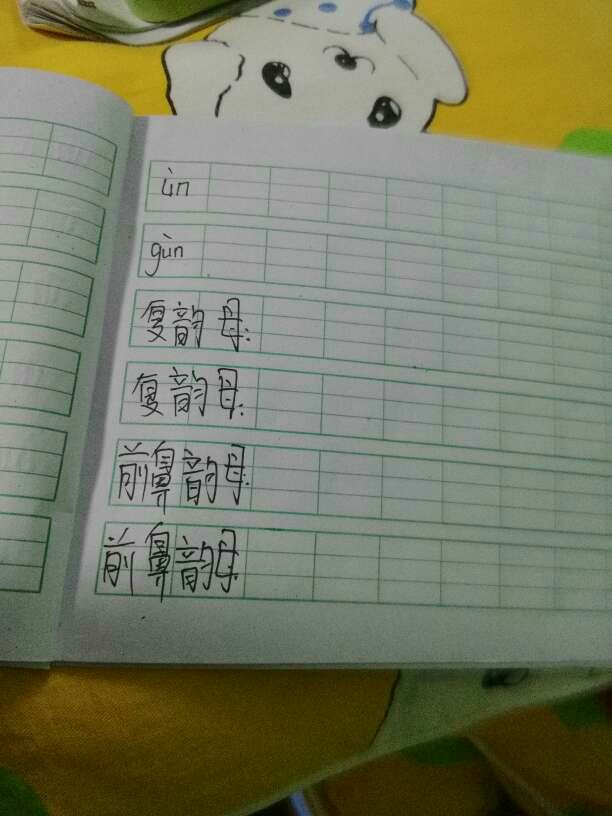 ùn
gùn
复韵母:
复韵母:
前鼻韵母.
前鼻韵母